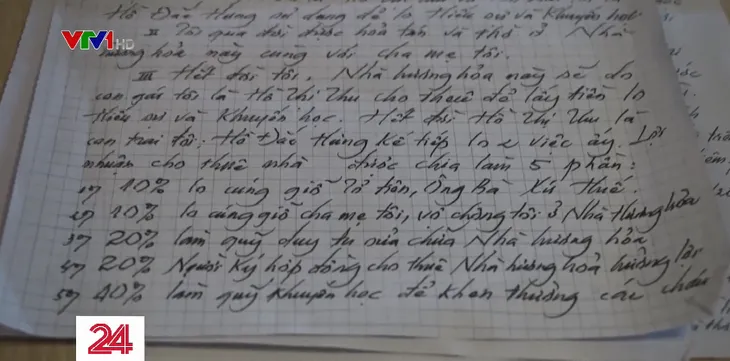 Hồ Đắc Hưng sử dụng để lo Hiếu sự và Khuyến học
II Tôi qua đời được hoả tán và thờ ở Nhà
hương hoả này cùng với cha mẹ tôi.
III Hết đời tôi, Nhà hương hỏa này sẽ do
con gái tôi là Hồ Thị Thu cho thuê để lấy tiền lo
Hiếu sự và Khuyến học. Hết đời Hồ Thị Thu là
con trai tôi: Hồ Đắc Hưng kế tiếp lo 2 việc ấy. Lợi
nhuận cho thuê nhà được chia làm 5 phần:
1) 10% lo cúng giỗ Tổ tiên, Ông Bà Xứ Huế.
2) 10% lo cúng giỗ cha mẹ tôi, vợ chồng tôi ở Nhà Hương hỏa
3) 20% làm quỹ duy tu sửa chữa Nhà hương hỏa
4) 20% Người Ký hợp đồng cho thuê Nhà hương hoả hưởng lợi
5) 40% làm quỹ Khuyến học để khen thưởng các cháu
VTV1 HD
24